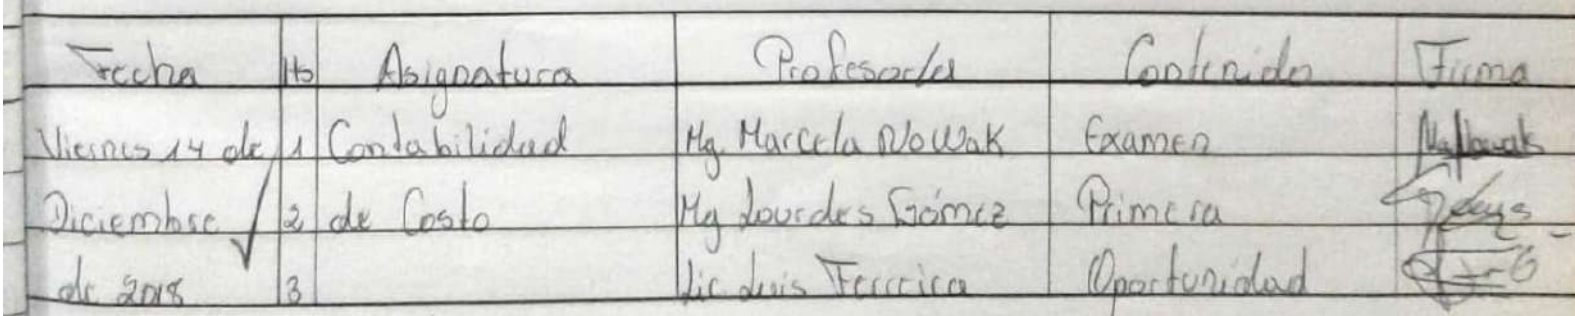 Fecha Hs Asignatura Profesor/a Contenido Firma
Viernes 14 de 1 Contabilidad Mg Marcela Nowak Examen MNowak
Diciembre 2 de Costo Mg Lourdes Gómez Primera
de 2018 3 Lic Luis Ferreira Oportunidad